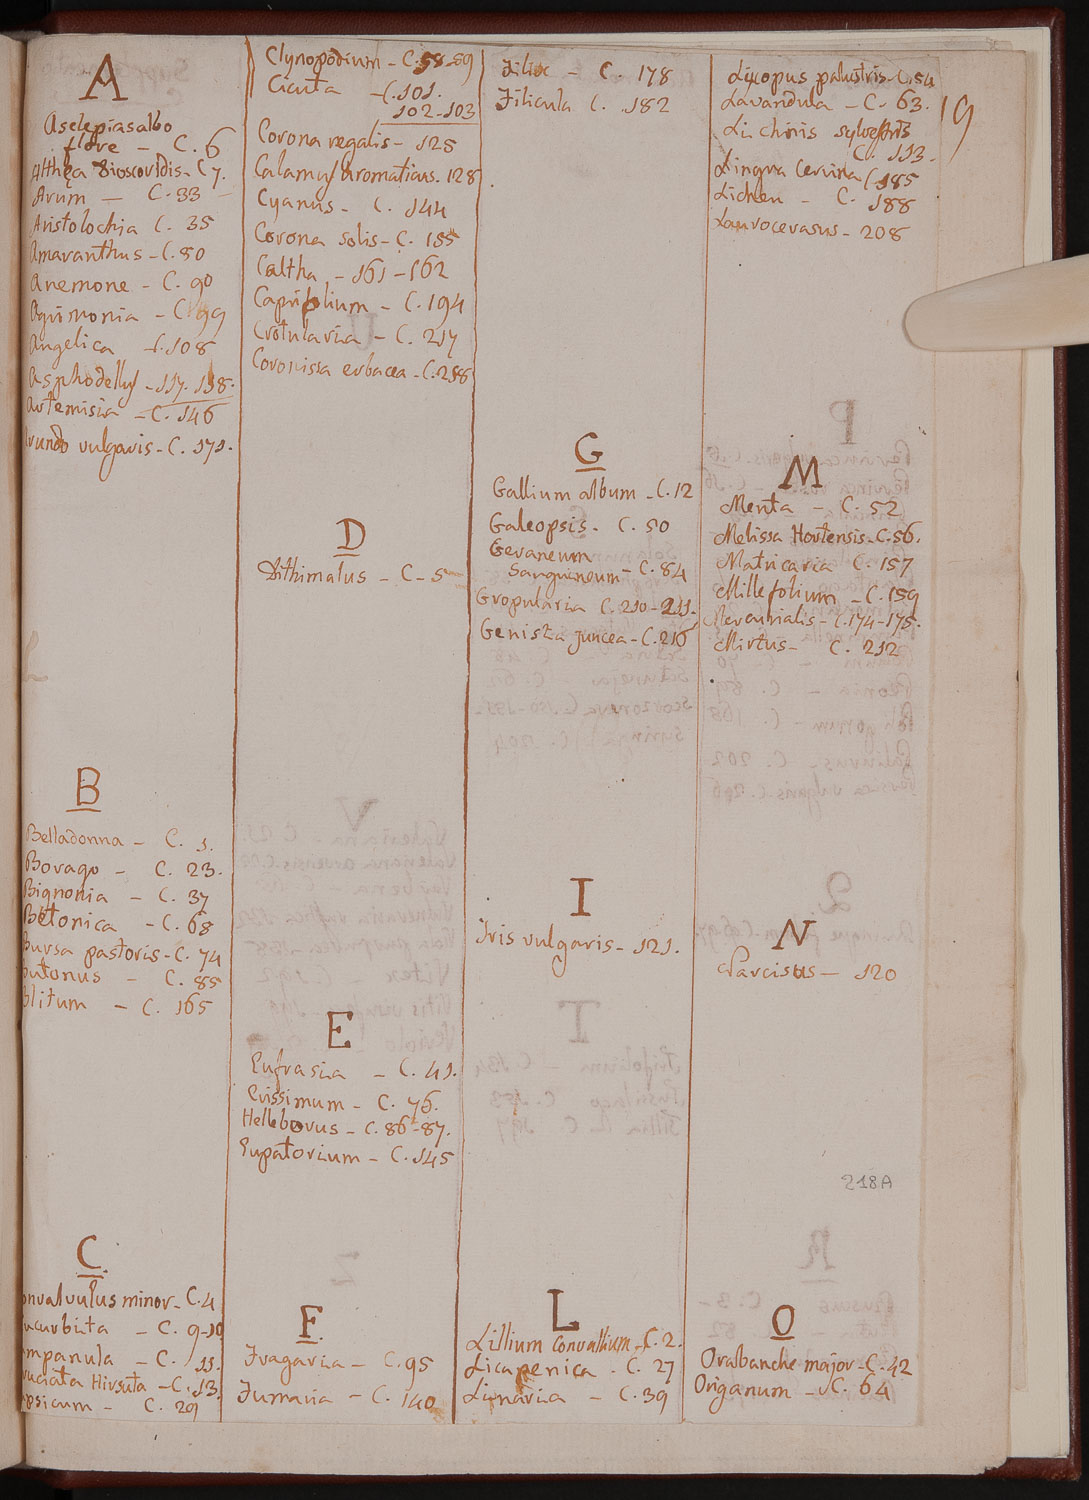 A
Aselepias albo
flore - C. 6
Althęa Dioscoridis - C 7.
Arum - C. 33
Aristolochia C. 35
Amaranthus - C. 80
Anemone - C. 90
Agrimonia - C 99
Angelica - C. 108
Asphodellus - 117. 118.
Artemisia - C. 146
Arundo vulgaris - C. 171.
B
Belladonna - C. 1.
Borago - C. 23.
Bignonia - C. 37
Betonica - C. 68
Bursa pastoris - C. 74
butonus - C. 85
blitum - C. 165
C.
onvalvulus minor - C. 4
ucurbita - C. 9-10
mpanula - C. 11.
ruciata Hirsuta - C. 13.
psicum - C. 29
Clynopodium - C. 58-59
Cicuta - C. 101.
102-103
Corona regalis - 125
Calamus Aromaticus. 128
Cyanus - C. 144
Corona solis - C. 155
Caltha - 161-162
Caprifolium - C. 194
Crotularia - C. 217
Coronissa erbacea - C. 218
D
Dithimalus - C - 5
E
Eufrasia - C. 41.
Erissimum - C. 76.
Helleborus - C. 86-87.
Eupatorium - C. 145
F.
Fragaria - C. 95
Fumaria - C. 140
Filix - C. 178
Filicula C. 182
G
Gallium album - C. 12
Galeopsis - C. 50
Geraneum
Sanguineum - C. 84
Gropularia C. 210-211.
Genista juncea - C. 216
I
Iris vulgaris - 121.
L
Lillium convallium - C. 2.
Licapenica - C. 27
Linaria - C. 39
Licopus palustris - C. 54
Lavandula - C. 63.
Lichinis sylvestris
C. 113.
Lingua Cervina C 185
Lichen - C. 188
Laurocerasus - 208
M
Menta - C. 52
Melissa Hortensis - C. 56.
Matricaria C. 157
Millefolium - C. 159
Mercurialis - C. 174-175.
Mirtus - C. 212
N
Narcisus - 120
218A
O
Orabanche major - C. 42
Origanum - C. 64
19